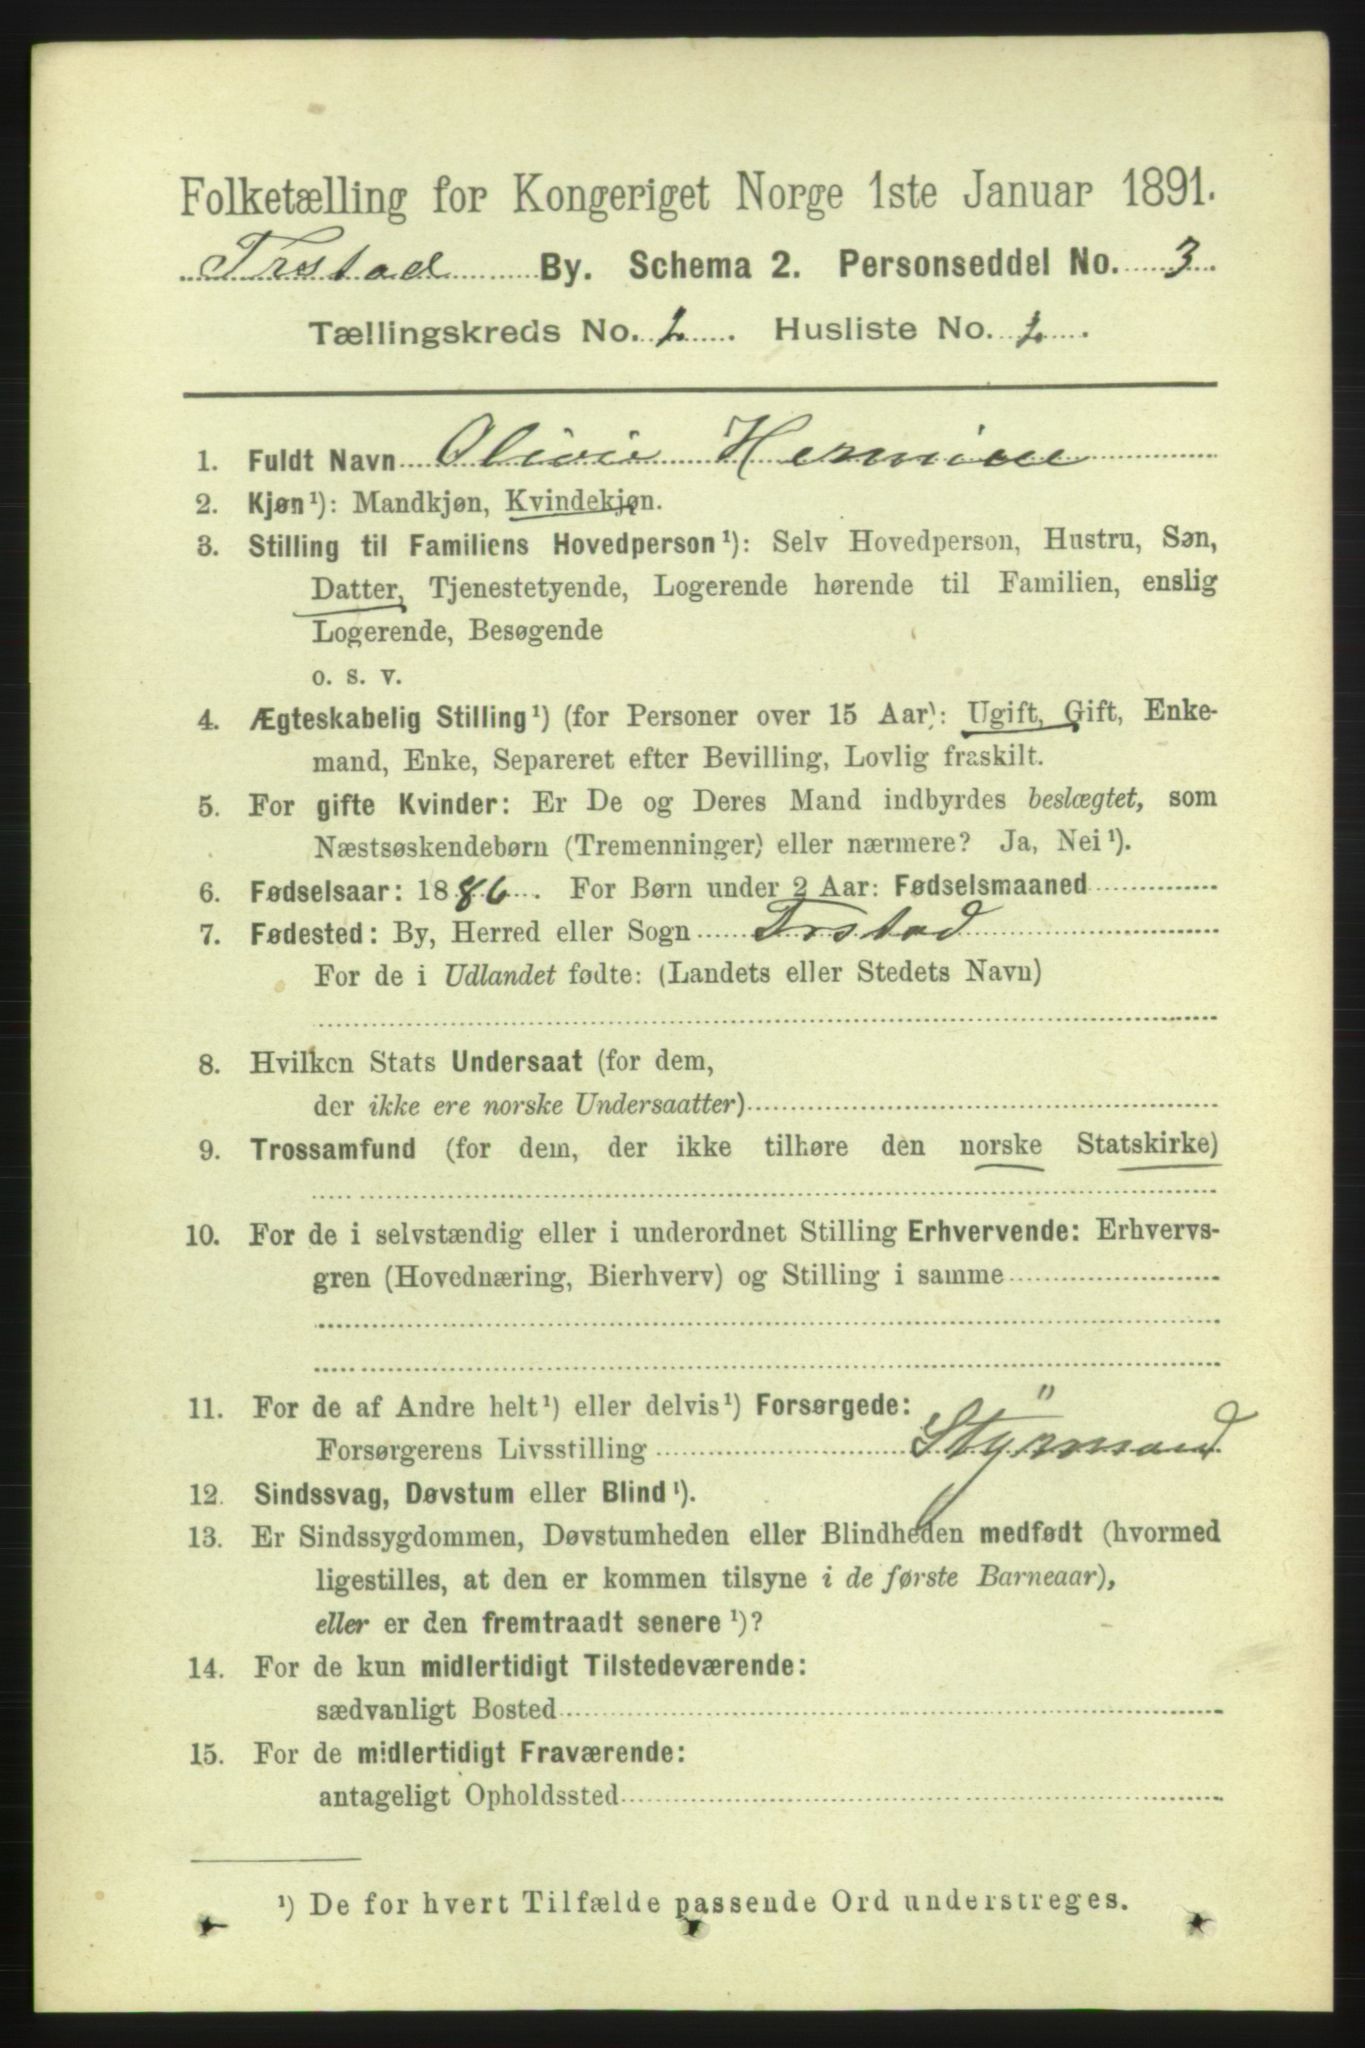 Folketælling for Kongeriget Norge 1ste Januar 1891.
Frstad By. Schema 2. Personseddel No. 3
Tællingskreds No. 1. Husliste No. 1.
1. Fuldt Navn Olivie Hermine
2. Kjøn¹): Mandkjøn, Kvindekjøn.
3. Stilling til Familiens Hovedperson¹): Selv Hovedperson, Hustru, Søn,
Datter, Tjenestetyende, Logerende hørende til Familien, enslig
Logerende, Besøgende
o. s. v.
4. Ægteskabelig Stilling¹) (for Personer over 15 Aar): Ugift, Gift, Enke-
mand, Enke, Separeret efter Bevilling, Lovlig fraskilt.
5. For gifte Kvinder: Er De og Deres Mand indbyrdes beslægtet, som
Næstsøskendebørn (Tremenninger) eller nærmere? Ja, Nei¹).
6. Fødselsaar: 1886. For Børn under 2 Aar: Fødselsmaaned
7. Fødested: By, Herred eller Sogn Frstad
For de i Udlandet fødte: (Landets eller Stedets Navn)
8. Hvilken Stats Undersaat (for dem,
der ikke ere norske Undersaatter)
9. Trossamfund (for dem, der ikke tilhøre den norske Statskirke)
10. For de i selvstændig eller i underordnet Stilling Erhvervende: Erhvervs-
gren (Hovednæring, Bierhverv) og Stilling i samme
11. For de af Andre helt¹) eller delvis¹) Forsørgede:
Forsørgerens Livsstilling Styrmand
12. Sindssvag, Døvstum eller Blind¹).
13. Er Sindssygdommen, Døvstumheden eller Blindheden medfødt (hvormed
ligestilles, at den er kommen tilsyne i de første Barneaar),
eller er den fremtraadt senere¹)?
14. For de kun midlertidigt Tilstedeværende:
sædvanligt Bosted
15. For de midlertidigt Fraværende:
antageligt Opholdssted
¹) De for hvert Tilfælde passende Ord understreges.